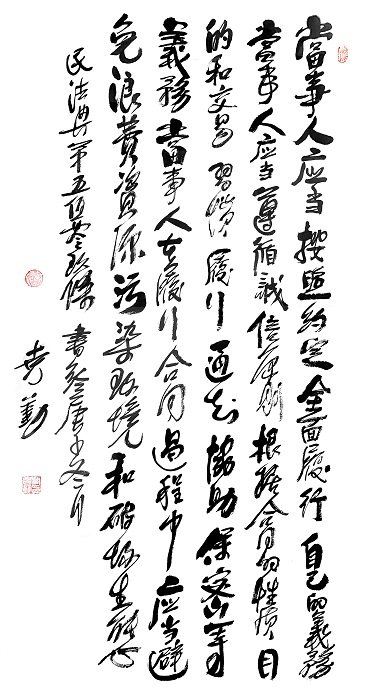 當事人应当按照约定全面履行自己的義務
當事人应当遵循誠信原則根据合同的性質目
的和交易習慣履行通知協助保密等
義務當事人在履行合同過程中应当避
免浪費資源污染環境和破壞生態
民法典第五百零玖條 書冬月
勤